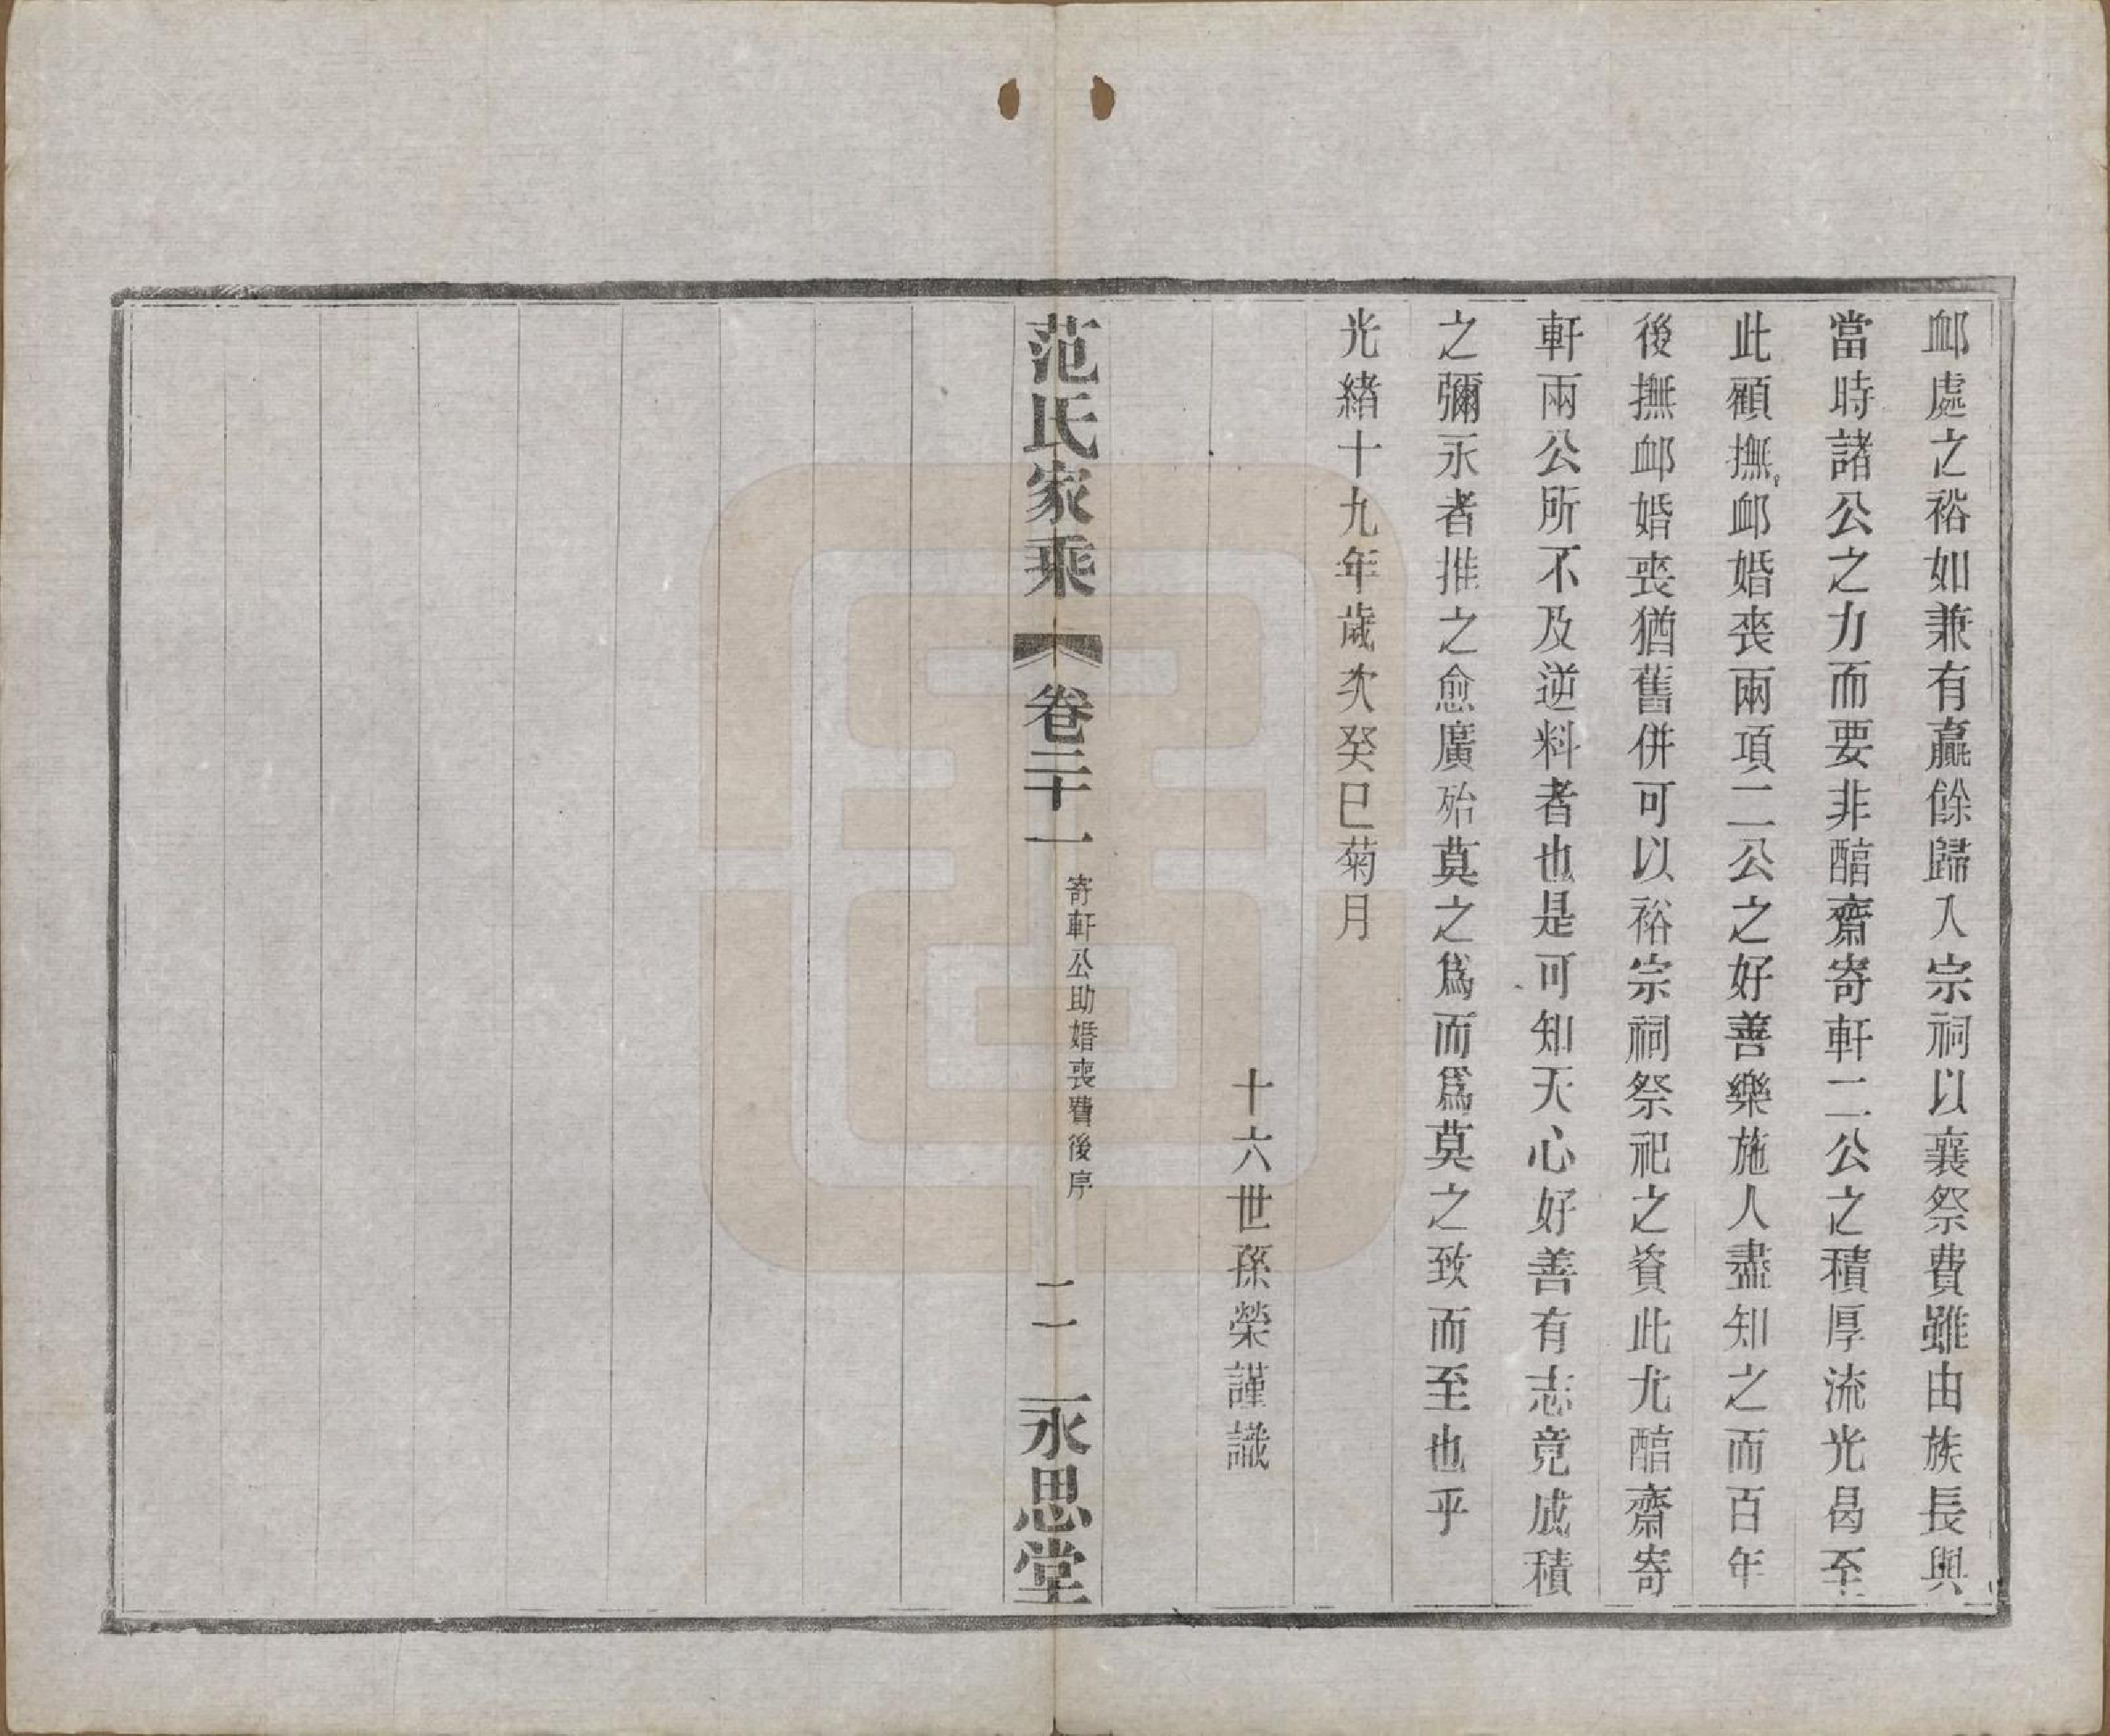 卹處之裕如兼有贏餘歸入宗祠以襄祭費雖由族長與
當時諸公之力而要非醅齋寄軒二公之積厚流光曷至
此顧撫卹婚喪兩項二公之好善樂施人盡知之而百年
後撫卹婚喪猶舊併可以裕宗祠祭祀之資此尤醅齋寄
軒兩公所不及逆料者也是可知天心好善有志竟成積
之彌永者推之愈廣殆莫之爲而爲莫之致而至也乎
光緒十九年歲次癸巳菊月
十六世孫榮謹識
范氏家乘 卷二十一 寄軒公助婚喪費後序 二 永思堂